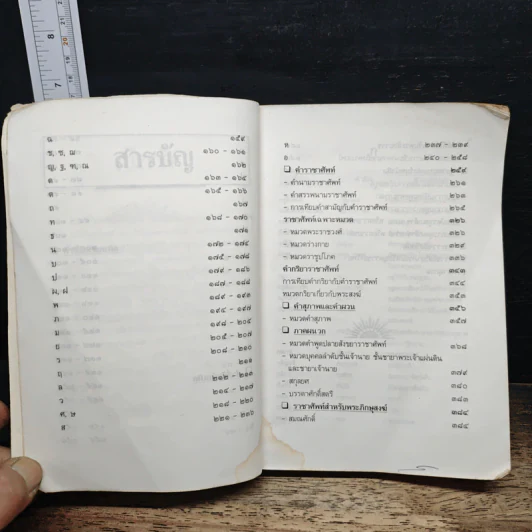 ฉ ๑๕๙
ช, ซ, ฌ ๑๖๐ - ๑๖๑
ญ, ฐ, ฑ, ณ ๑๖๒
ด ๑๖๓ - ๑๖๔
ต ๑๖๕ - ๑๖๖
ถ ๑๖๗
ท ๑๖๘ - ๑๗๐
ธ ๑๗๑
น ๑๗๒ - ๑๗๔
บ ๑๗๕ - ๑๗๘
ป
ผ, ฝ
พ
ภ
ม
ย
ร
ฤ ๒๑๑
ล ๒๑๒ - ๒๑๓
ว ๒๑๔ - ๒๑๗
ศ, ษ ๒๑๘ - ๒๒๐
ส ๒๒๑ - ๒๓๖
ห ๒๓๗ - ๒๓๙
อ ๒๔๐ - ๒๕๘
❑ คำราชาศัพท์ ๒๕๙
- ตำนานราชาศัพท์ ๒๖๑
- คำสรรพนามราชาศัพท์ ๒๖๓
- การเทียบคำสามัญกับคำราชาศัพท์ ๒๖๕
ราชาศัพท์เฉพาะหมวด ๓๒๖
- หมวดพระราชวงศ์ ๓๒๖
- หมวดร่างกาย ๓๒๙
- หมวดราชูปโภค ๓๓๖
คำกริยาราชาศัพท์ ๓๔๓
การเทียบคำกริยากับคำราชาศัพท์ ๓๔๔
หมวดกริยาเกี่ยวกับพระสงฆ์ ๓๕๓
❑ คำสุภาพและคำผวน ๓๕๖
- หมวดคำสุภาพ ๓๕๗
❑ ภาคผนวก
- หมวดคำพูดปลายสังขยาราชาศัพท์ ๓๖๘
- หมวดบุคคลลำดับชั้นเจ้านาย ชั้นชายาพระเจ้าแผ่นดิน
และชายาเจ้านาย ๓๗๙
- สกุลยศ ๓๘๐
- บรรดาศักดิ์สตรี ๓๘๓
❑ ราชาศัพท์สำหรับพระภิกษุสงฆ์ ๓๘๔
- สมณศักดิ์ ๓๘๔